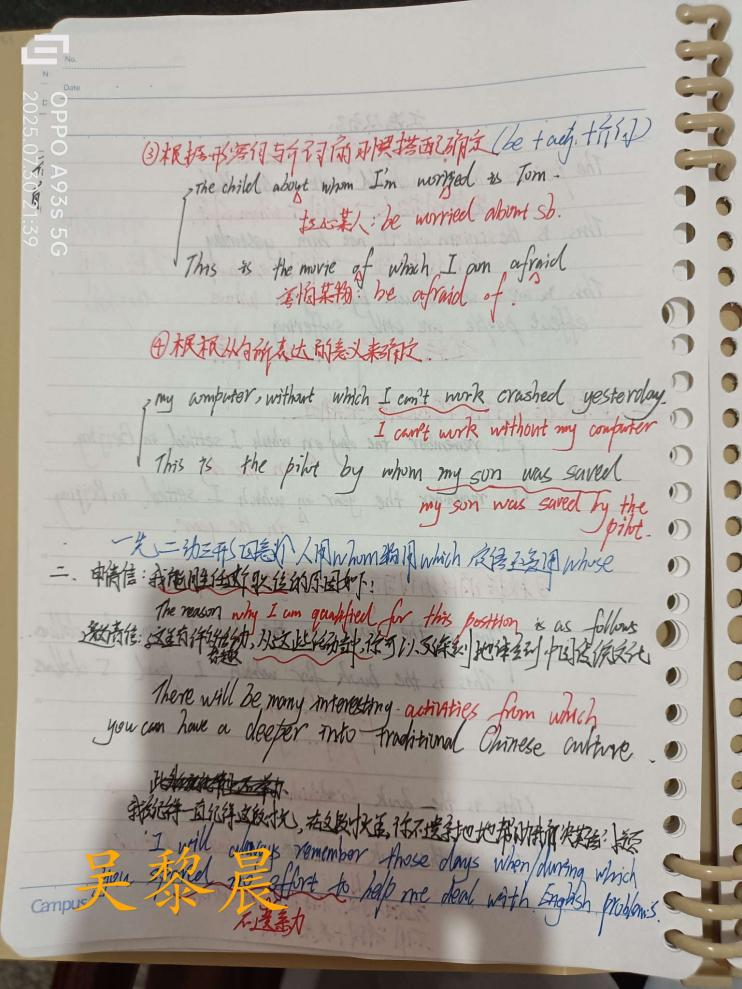 No.
Date
③根据形容词与介词的习惯搭配确定(be + adj. + 介词)
The child about whom I'm worried is Tom.
担心某人: be worried about sb.
This is the movie of which I am afraid
害怕某物: be afraid of
④根据从句所表达的意义来确定.
my computer, without which I can't work crashed yesterday.
I can't work without my computer
This is the pilot by whom my son was saved
my son was saved by the
pilot.
一先,二动三形四意 人用whom物用which 定语还当用whose
二、申请信: 我能胜任这个职位的原因如下:
The reason why I am qualified for this position is as follows
邀请信: 这里有许多活动, 从这些活动中, 你可以深刻地了解到中国传统文化
有趣
There will be many interesting activities from which
you can have a deeper into traditional Chinese culture.
我会一直记得这段时光, 在这段时光里, 你不遗余力地帮助我解决英语问题
I will always remember those days when/during which
you effort to help me deal with English problems.
不遗余力
Campus
吴黎晨
OPPO A93s 5G
2025.07.30 21:39